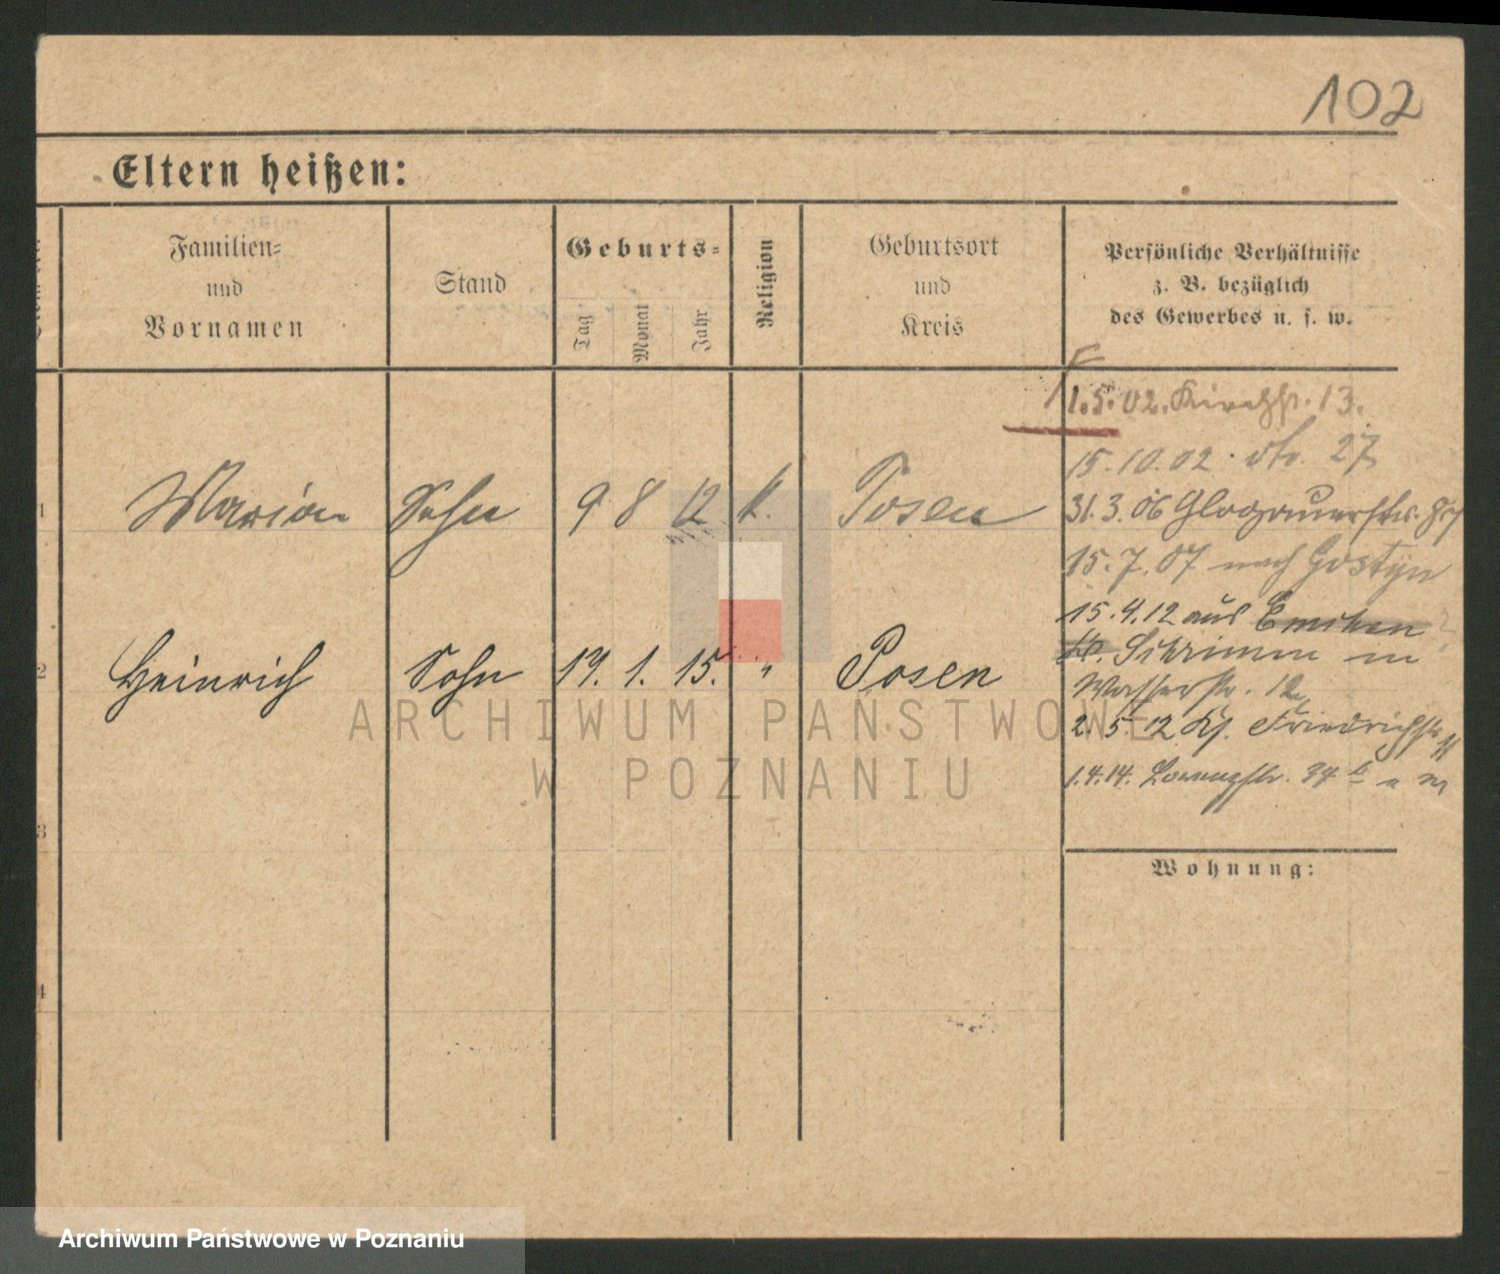 102
Eltern heißen:
Familien-
und
Vornamen
Stand
Geburts-
Tag
Monat
Jahr
Religion
Geburtsort
und
Kreis
Persönliche Verhältnisse
z. B. bezüglich
des Gewerbes u. s. w.
1.5.02. Kirchstr. 13.
15.10.02. dto. 27
1 Marian Sohn 9 8 12 k. Posen
31.3.06 Glogauerstr.
15.7.07 nach Gostyn
15.4.12 aus Emchen
Schrimm in
2 Heinrich Sohn 14. 1. 15. " Posen
Wasserstr. 12
2.5.12 Friedrichstr.
1.4.14.
3
Wohnung:
4
ARCHIWUM PAŃSTWOWE
W POZNANIU
Archiwum Państwowe w Poznaniu